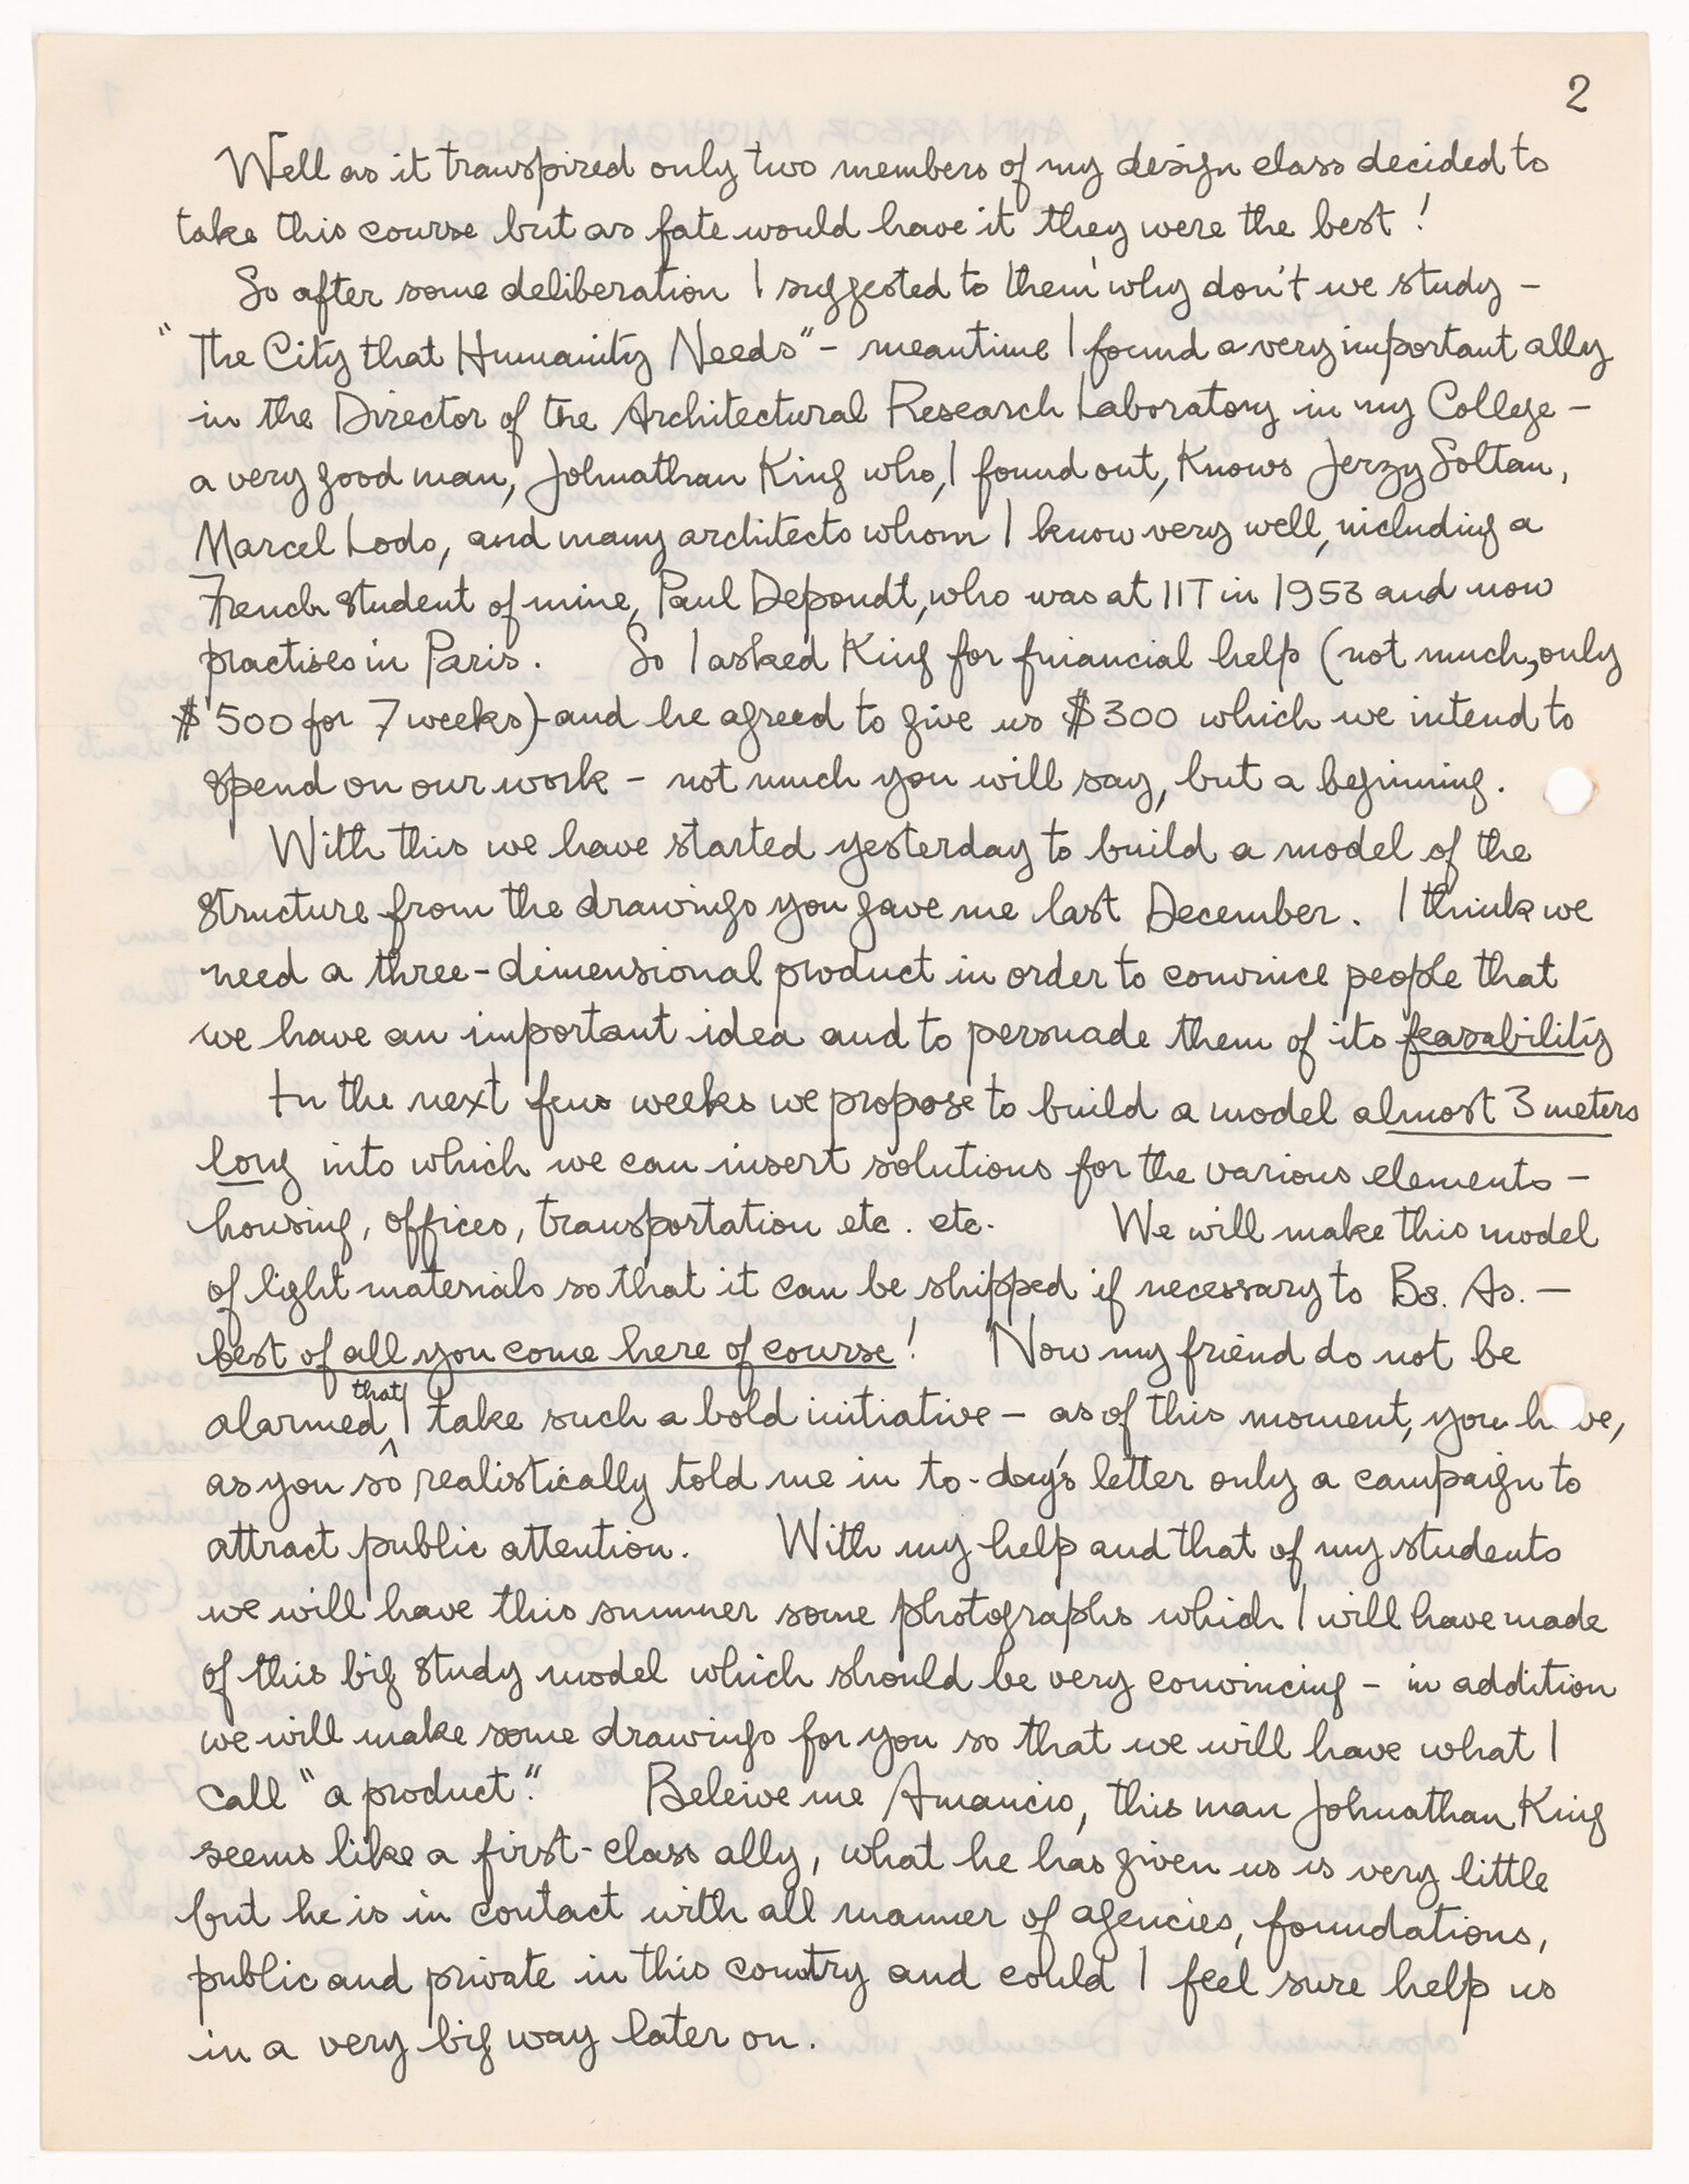 2
Well as it transpired only two members of my design class decided to
take this course but as fate would have it they were the best!
So after some deliberation I suggested to them why don't we study –
"The City that Humanity Needs" – meantime I found a very important ally
in the Director of the Architectural Research Laboratory in my College –
a very good man, Johnathan King who, I found out, knows Jerzy Soltan,
Marcel Lods, and many architects whom I know very well, including a
French student of mine, Paul Depondt, who was at IIT in 1953 and now
practises in Paris. So I asked King for financial help (not much, only
$500 for 7 weeks) – and he agreed to give us $300 which we intend to
spend on our work – not much you will say, but a beginning.
With this we have started yesterday to build a model of the
structure from the drawings you gave me last December. I think we
need a three-dimensional product in order to convince people that
we have an important idea and to persuade them of its feasability
In the next few weeks we propose to build a model almost 3 meters
long into which we can insert solutions for the various elements –
housing, offices, transportation etc. etc. We will make this model
of light materials so that it can be shipped if necessary to Bs. As. –
best of all you come here of course! Now my friend do not be
alarmed that I take such a bold initiative – as of this moment, you have,
as you so realistically told me in to-day's letter only a campaign to
attract public attention. With my help and that of my students
we will have this summer some photographs which I will have made
of this big study model which should be very convincing – in addition
we will make some drawings for you so that we will have what I
call "a product." Beleive me Amancio, this man Johnathan King
seems like a first-class ally, what he has given us is very little
but he is in contact with all manner of agencies, foundations,
public and private in this country and could I feel sure help us
in a very big way later on.